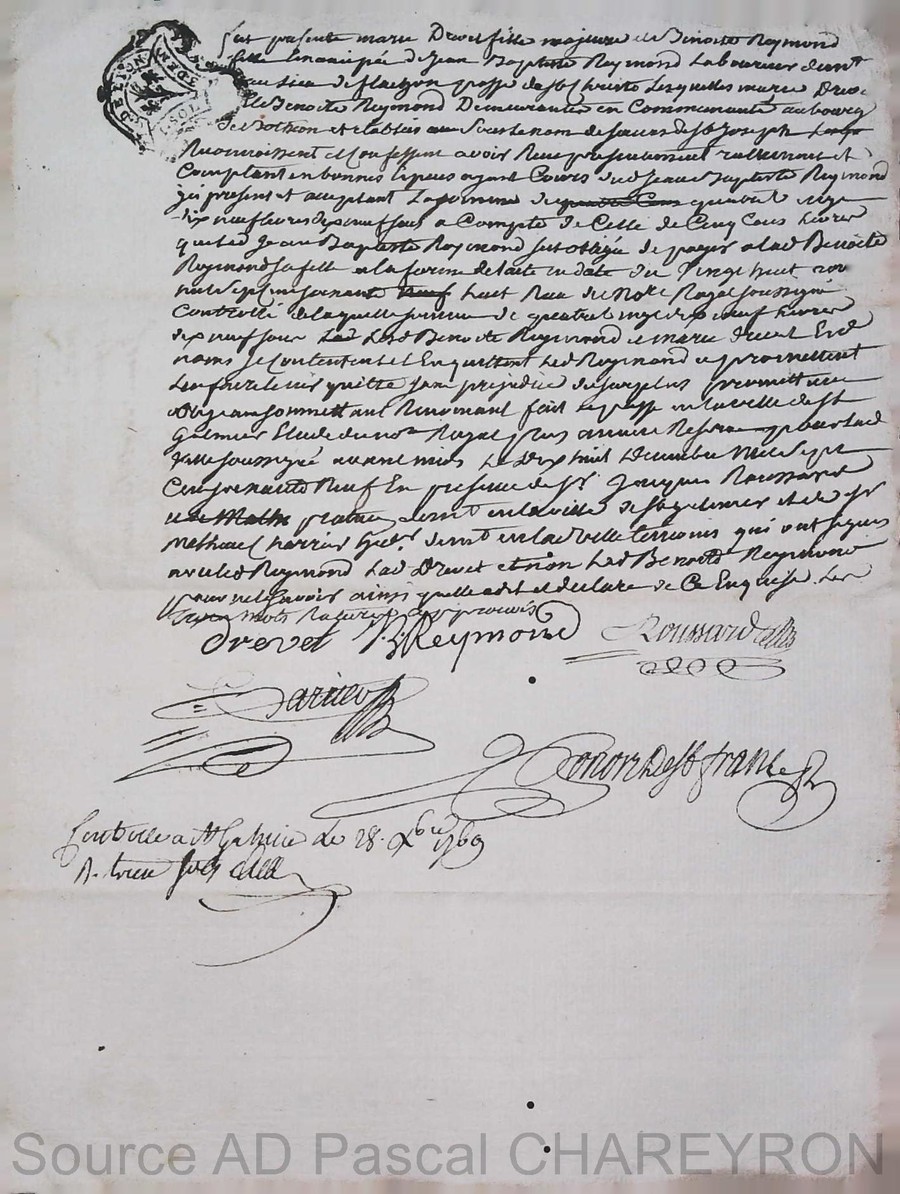 fut presente marie Drevet fille majeure et Benoite Reymond
fille Emancipée de Jean Baptiste Reymond Laboureur dem.t
au lieu de flachon psse de st Christo Lesquelles marie Drevet
et Benoite Reymond Demeurantes en Communauté au bourg
de Bothéon Etablies sous le nom de soeurs de st Joseph
Reconnoissent et Confessent avoir Reçu presentement reellement et
Comptant en bonnes Especes ayant Cours dud Jean Baptiste Reymond
ici present et acceptant La somme de quatre vingt
dix neuf livres dix neuf sols a Compte de Celle de Cinq Cens livres
que led Jean Baptiste Reymond s'est obligé de payer a lad Benoite
Reymond sa fille a la forme de l'acte en date du vingt huit
mil sept cent soixante huit Reçu du No.re Royal soussigné
Controllé de laquelle somme de quatre vingt dix neuf livres
dix neuf sous Lad Benoite Reymond et marie Drevet
noms se Contentent et En quittent led Reymond et promettent
L'en faire tenir quitte sans prejudice du surplus promettant
obligeant soumettant Renonçant fait et passé en la ville de st
Galmier Etude du no.re Royal pour lad
ville soussigné avant midi Le Dix huit Decembre mil sept
Cent soixante Neuf En presence de sr Jacques Roussard
praticien demt en la ville de st galmier et de sr
Mathieu demt en lad ville temoins qui ont signé
avec led Reymond Lad Drevet et non Lad Benoite Reymond
pour ne le savoir ainsi quelle a dit et declare de Ce Enquise. Les
mots Raturés approuvés
Drevet J. B Reymond Roussard
Ronon De st france
Controlle a st Galmier Le 28 Xbre 1769
R. treize sols
Source AD Pascal CHAREYRON